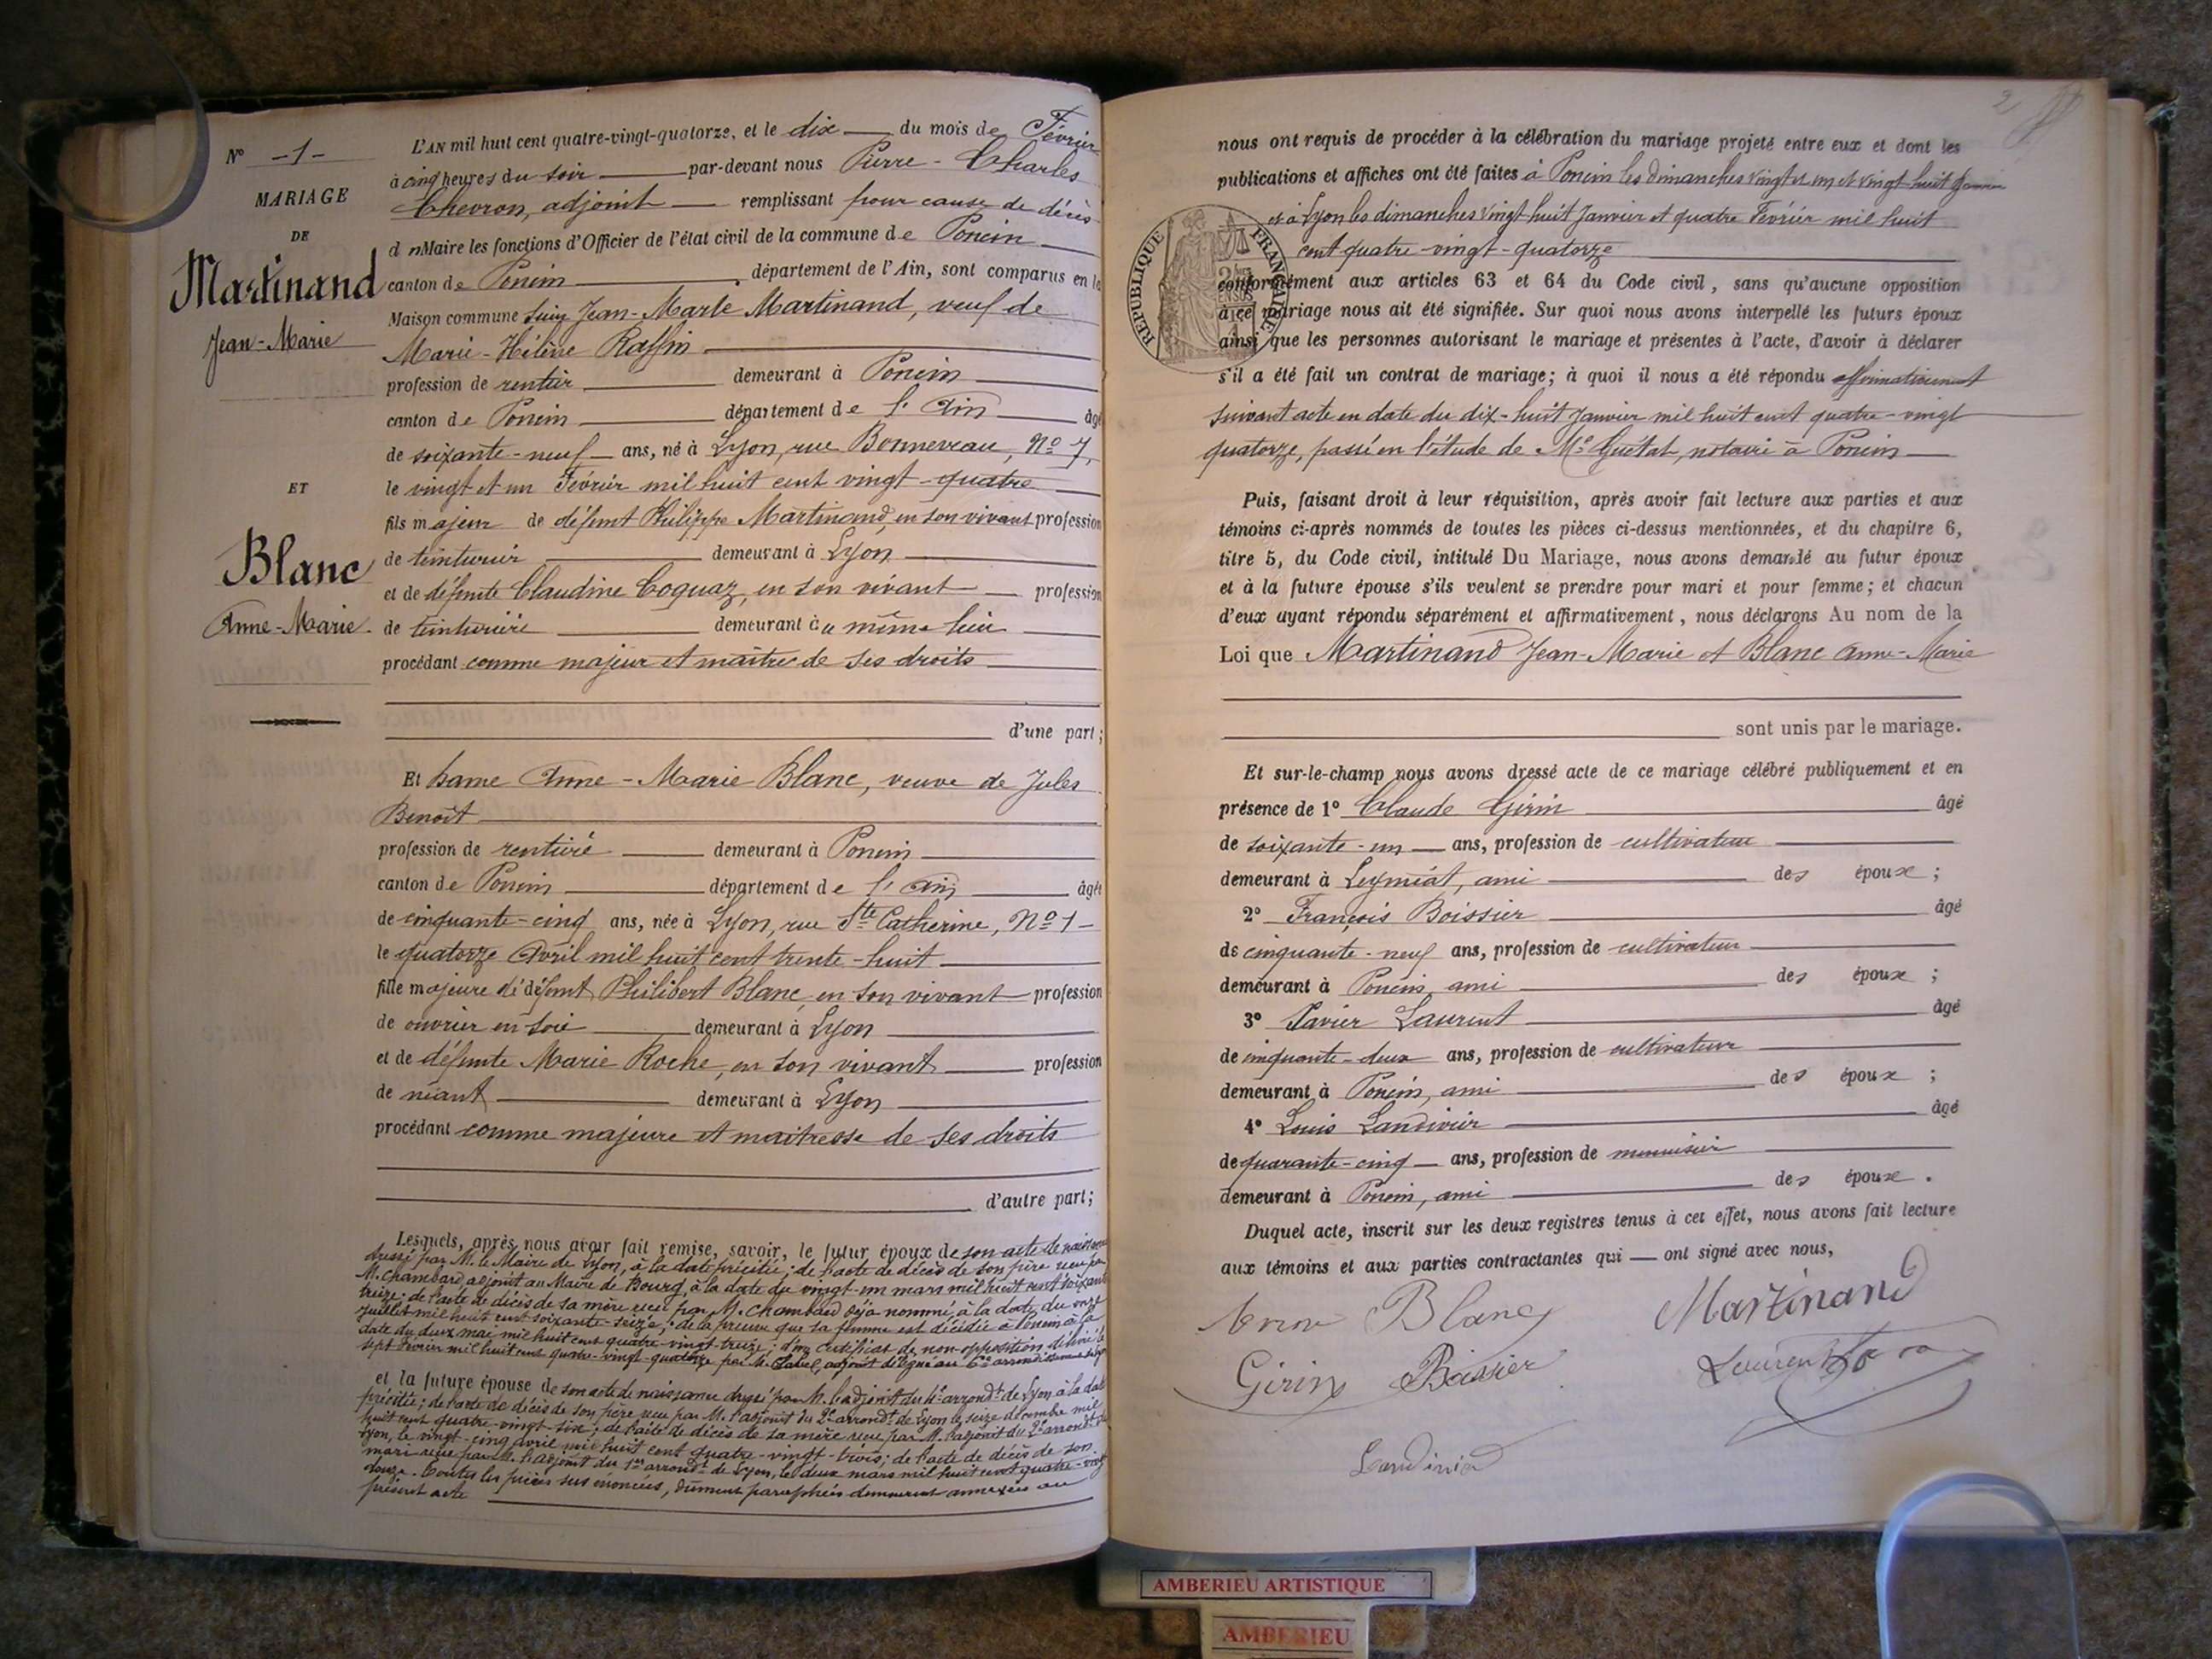 N° -1-
MARIAGE
DE
Martinand
Jean-Marie
ET
Blanc
Anne-Marie
L'AN mil huit cent quatre-vingt-quatorze, et le dix du mois de Février
à cinq heures du soir par-devant nous Pierre-Charles
Chevron, adjoint remplissant pour cause de décès
d u Maire les fonctions d'Officier de l'état civil de la commune de Poncin
canton de Poncin département de l'Ain, sont comparus en la
Maison commune Jean-Marie Martinand, veuf de
Marie-Hélène Raffin
profession de rentier demeurant à Poncin
canton de Poncin département de l'Ain âgé
de soixante-neuf ans, né à Lyon, rue Bonneveau, N° 7,
le vingt et un Février mil huit cent vingt-quatre
fils majeur de défunt Philippe Martinand, en son vivant profession
de teinturier demeurant à Lyon
et de défunte Claudine Coquaz, en son vivant profession
de teinturière demeurant au même lieu
procédant comme majeur et maître de ses droits
d'une part;
Et Dame Anne-Marie Blanc, veuve de Jules
Benoît
profession de rentière demeurant à Poncin
canton de Poncin département de l'Ain âgée
de cinquante-cinq ans, née à Lyon, rue Ste Catherine, N° 1-
le quatorze Avril mil huit cent trente-huit
fille majeure de défunt Philibert Blanc en son vivant profession
de ouvrier en soie demeurant à Lyon
et de défunte Marie Roche, en son vivant profession
de néant demeurant à Lyon
procédant comme majeure et maitresse de ses droits
d'autre part;
Lesquels, après nous avoir fait remise, savoir, le futur époux de son acte de naissance
dressé par M. le Maire de Lyon, à la date précitée; de l'acte de décès de son père reçu par
M. Chambard adjoint au Maire de Bourg, à la date du vingt-un mars mil huit cent soixante
treize; de l'acte de décès de sa mère reçu par M. Chambard déjà nommé, à la date du onze
Juillet mil huit cent soixante-seize; de la preuve que sa femme est décédée à Poncin à la
date du deux mai mil huit cent quatre-vingt-treize; d'un certificat de non-opposition délivré le
sept Février mil huit cent quatre-vingt-quatorze par M. adjoint délégué au arrondissement de Lyon
et la future épouse de son acte de naissance dressé par M. l'adjoint du arrondt de Lyon à la date
précitée; de l'acte de décès de son père reçu par M. l'adjoint du 2e arrondt de Lyon le seize décembre mil
huit cent quatre-vingt-six; de l'acte de décès de sa mère reçu par M. l'adjoint du 2e arrondt de
Lyon, le vingt-cinq avril mil huit cent quatre-vingt-trois; de l'acte de décès de son
mari reçu par M. l'adjoint du 1er arrondt de Lyon, le deux mars mil huit cent quatre-vingt
douze. Toutes les pièces sus énoncées, dûment paraphées demeurent annexées au
présent acte
2
nous ont requis de procéder à la célébration du mariage projeté entre eux et dont les
publications et affiches ont été faites à Poncin les dimanches vingt et un et vingt-huit Janvier
et à Lyon les dimanches vingt huit Janvier et quatre Février mil huit
cent quatre-vingt-quatorze
RÉPUBLIQUE FRANÇAISE
conformément aux articles 63 et 64 du Code civil, sans qu'aucune opposition
à ce mariage nous ait été signifiée. Sur quoi nous avons interpellé les futurs époux
ainsi que les personnes autorisant le mariage et présentes à l'acte, d'avoir à déclarer
s'il a été fait un contrat de mariage; à quoi il nous a été répondu affirmativement
suivant acte en date du dix-huit Janvier mil huit cent quatre-vingt
quatorze, passé en l'étude de Me Guétat, notaire à Poncin
Puis, faisant droit à leur réquisition, après avoir fait lecture aux parties et aux
témoins ci-après nommés de toutes les pièces ci-dessus mentionnées, et du chapitre 6,
titre 5, du Code civil, intitulé Du Mariage, nous avons demandé au futur époux
et à la future épouse s'ils veulent se prendre pour mari et pour femme; et chacun
d'eux ayant répondu séparément et affirmativement, nous déclarons Au nom de la
Loi que Martinand Jean-Marie et Blanc Anne-Marie
sont unis par le mariage.
Et sur-le-champ nous avons dressé acte de ce mariage célébré publiquement et en
présence de 1° Claude Girin âgé
de soixante-un ans, profession de cultivateur
demeurant à Leymiat, ami des époux;
2° François Boissier âgé
de cinquante-neuf ans, profession de cultivateur
demeurant à Poncin, ami des époux;
3° Xavier Laurent âgé
de cinquante-deux ans, profession de cultivateur
demeurant à Poncin, ami des époux;
4° Louis Landivier âgé
de quarante-cinq ans, profession de menuisier
demeurant à Poncin, ami des époux.
Duquel acte, inscrit sur les deux registres tenus à cet effet, nous avons fait lecture
aux témoins et aux parties contractantes qui ont signé avec nous,
Blanc Martinand
Girin Boissier Laurent
AMBERIEU ARTISTIQUE
AMBERIEU